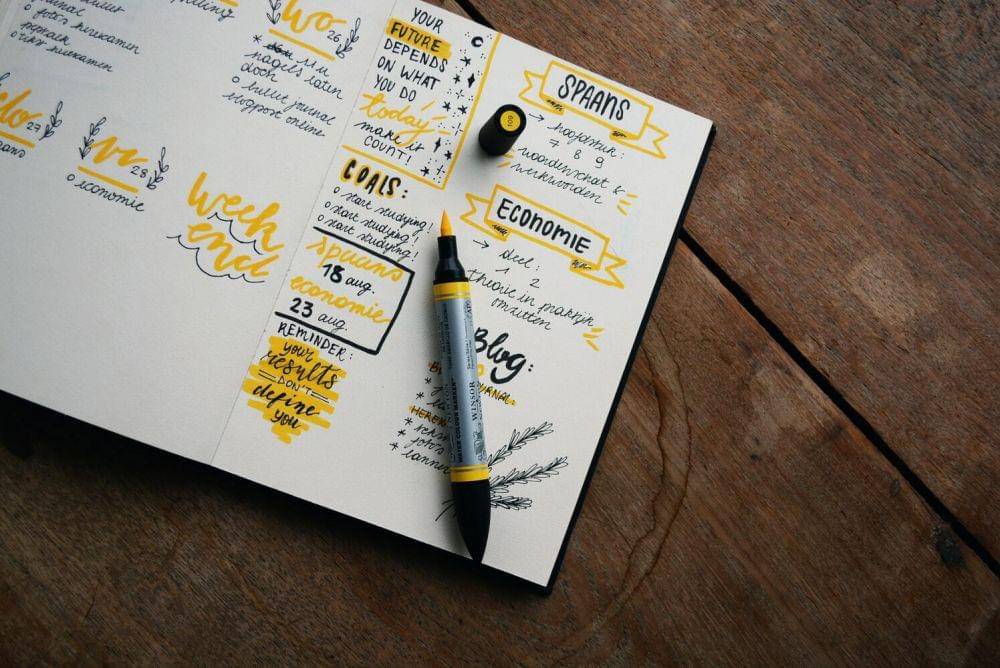 foto's herexamen
herexamen
WO 26
nagels laten
doen
o bullet journal
blogpost online
do 27
vr 28
o economie
week
end
YOUR
FUTURE
DEPENDS
ON WHAT
YOU DO
today
make it
COUNT!
GOALS:
o start studying!
o start studying!
o start studying!
spaans
18 aug.
economie
23 aug.
REMINDER:
your
results
DON'T
define
you
SPAANS
→ hoofdstuk:
7 8 9
woordenschat &
werkwoorden
ECONOMIE
→ deel:
1 2
theorie in praktijk
omzetten
Blog:
109
WINSOR
WATER COLOUR MARKER